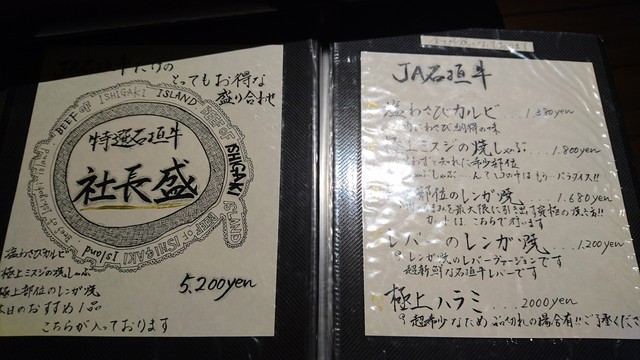 とってもお得な
盛り合わせ
BEEF OF ISHIGAKI ISLAND
特選石垣牛
社長盛
塩わさびカルビ
極上ミスジの焼しゃぶ
極上部位のレンガ焼
本日のおすすめ1品
こちらが入っております
5.200yen
JA石垣牛
塩わさびカルビ
わさび納得の味
極上ミスジの焼しゃぶ...1.800yen
部位のレンガ焼...1.680yen
旨みを最大限に引き出す究極の焼き方!!
カットは、こちらで行います
レバーのレンガ焼...1.200yen
レンガ焼のレバーヴァージョンです
超新鮮な石垣牛レバーです
極上ハラミ...2000yen
超希少なため品切れの場合有!!ご了承くださ